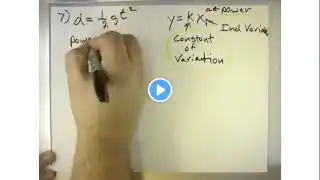 7) d = 1/2 g t²
power
y = k x^a ← power
Ind Variable
Constant
of
Variation